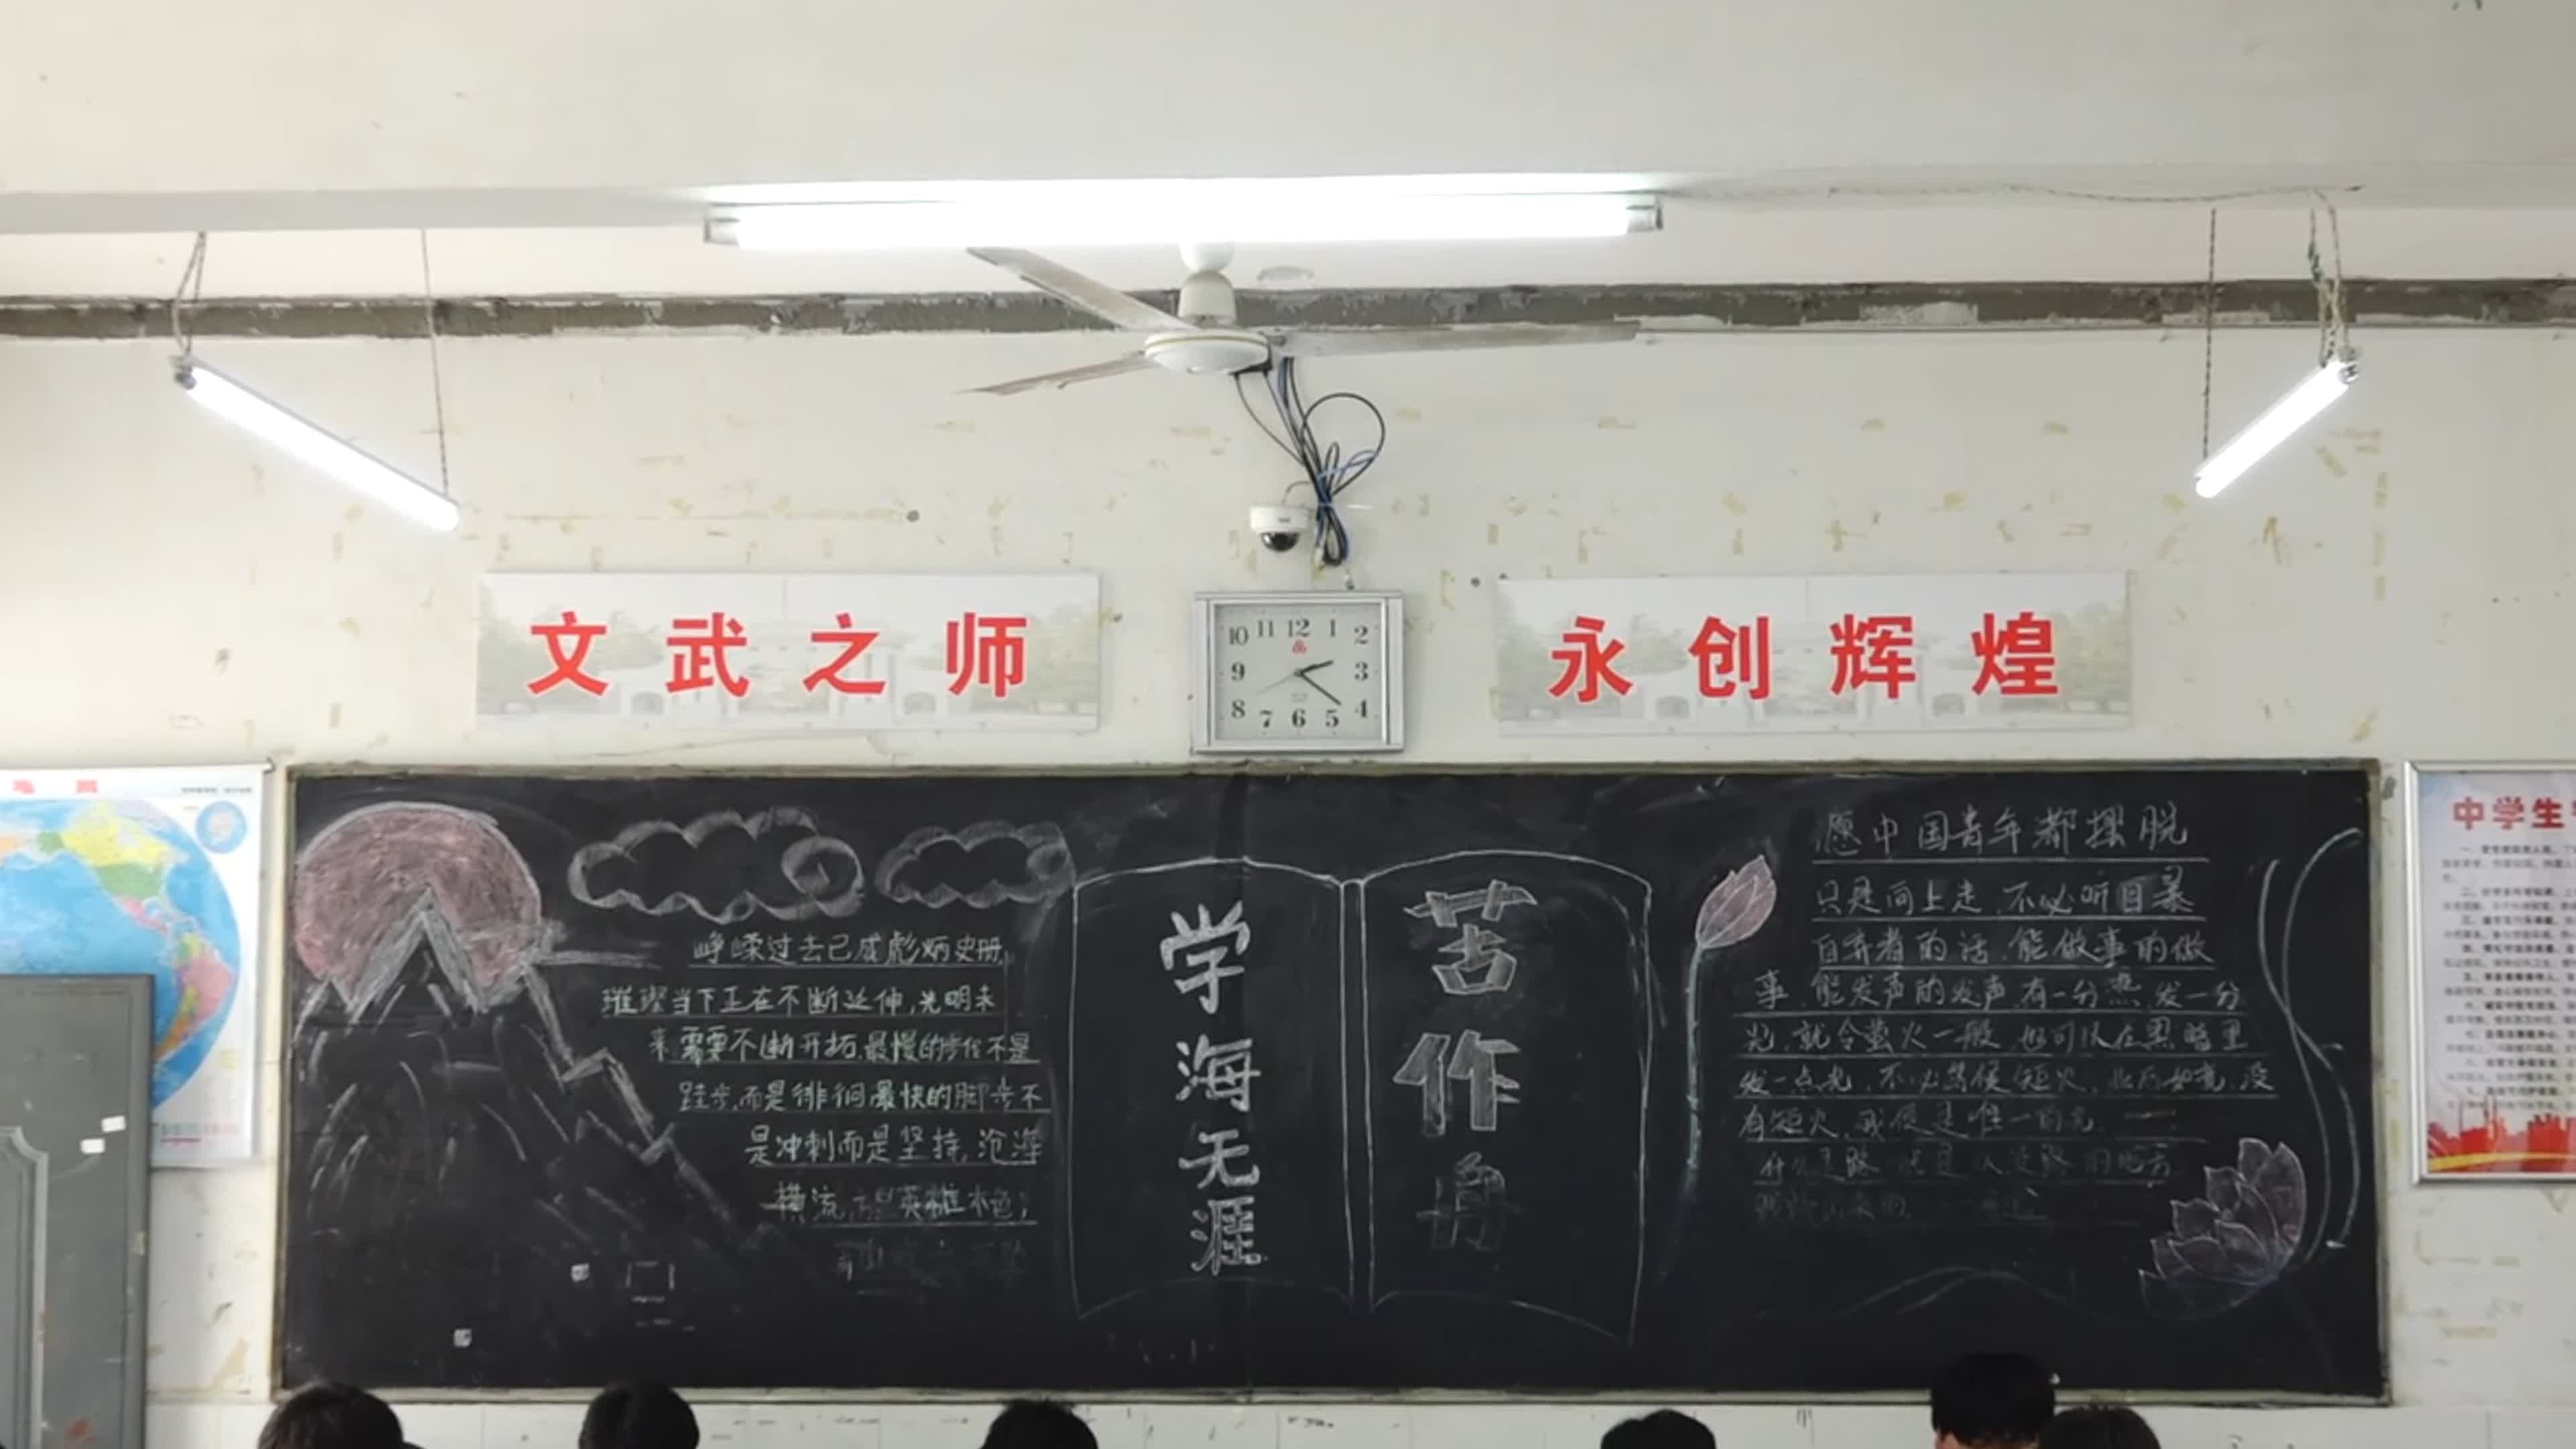 文武之师
永创辉煌
10 11 12 1 2
9 3
8 7 6 5 4
中学生
峥嵘过去已成彪炳史册,
璀璨当下正在不断延伸,光明未
来需要不断开拓,最慢的步伐不是
跬步,而是徘徊最快的脚步不
是冲刺而是坚持,沧海
横流,英雄本色;
学海无涯
苦作舟
愿中国青年都摆脱
只是向上走,不必听自暴
自弃者的话,能做事的做
事,能发声的发声,有一分热,发一分
光,就令萤火一般,也可以在黑暗里
发一点光,不必等候炬火,此后如竟没
有炬火,我便是唯一的光
什么是路 就是从没路的地方